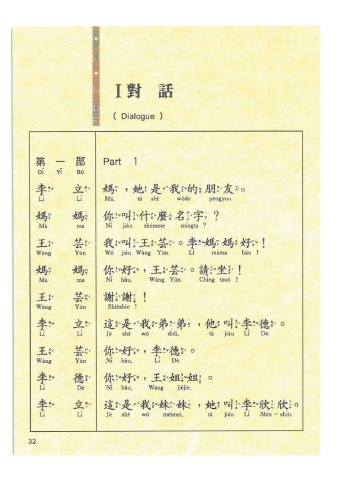 I 對 話
( Dialogue )
第 一 部 Part 1
Dì Yī Bù
李 立 媽，她是我的朋友。
Lǐ Lì Mā, tā shr̀ wǒde péngyou.
媽 媽 你叫什麼名字？
Mā ma Nǐ jiàu shémme míngtz?
王 芸 我叫王芸。李媽媽好！
Wáng Yún Wǒ jiàu Wáng Yún. Lǐ māma hǎu!
媽 媽 你好，王芸。請坐！
Mā ma Nǐ hǎu, Wáng Yún. Chǐng tzuò!
王 芸 謝謝！
Wáng Yún Shièshie!
李 立 這是我弟弟，他叫李德。
Lǐ Lì Jè shr̀ wǒ dìdi, tā jiàu Lǐ Dé.
王 芸 你好，李德。
Wáng Yún Nǐ hǎu, Lǐ Dé.
李 德 你好，王姐姐。
Lǐ Dé Nǐ hǎu, Wáng jiějie.
李 立 這是我妹妹，她叫李欣欣。
Lǐ Lì Jè shr̀ wǒ mèimei, tā jiàu Lǐ Shīn-shīn.
32